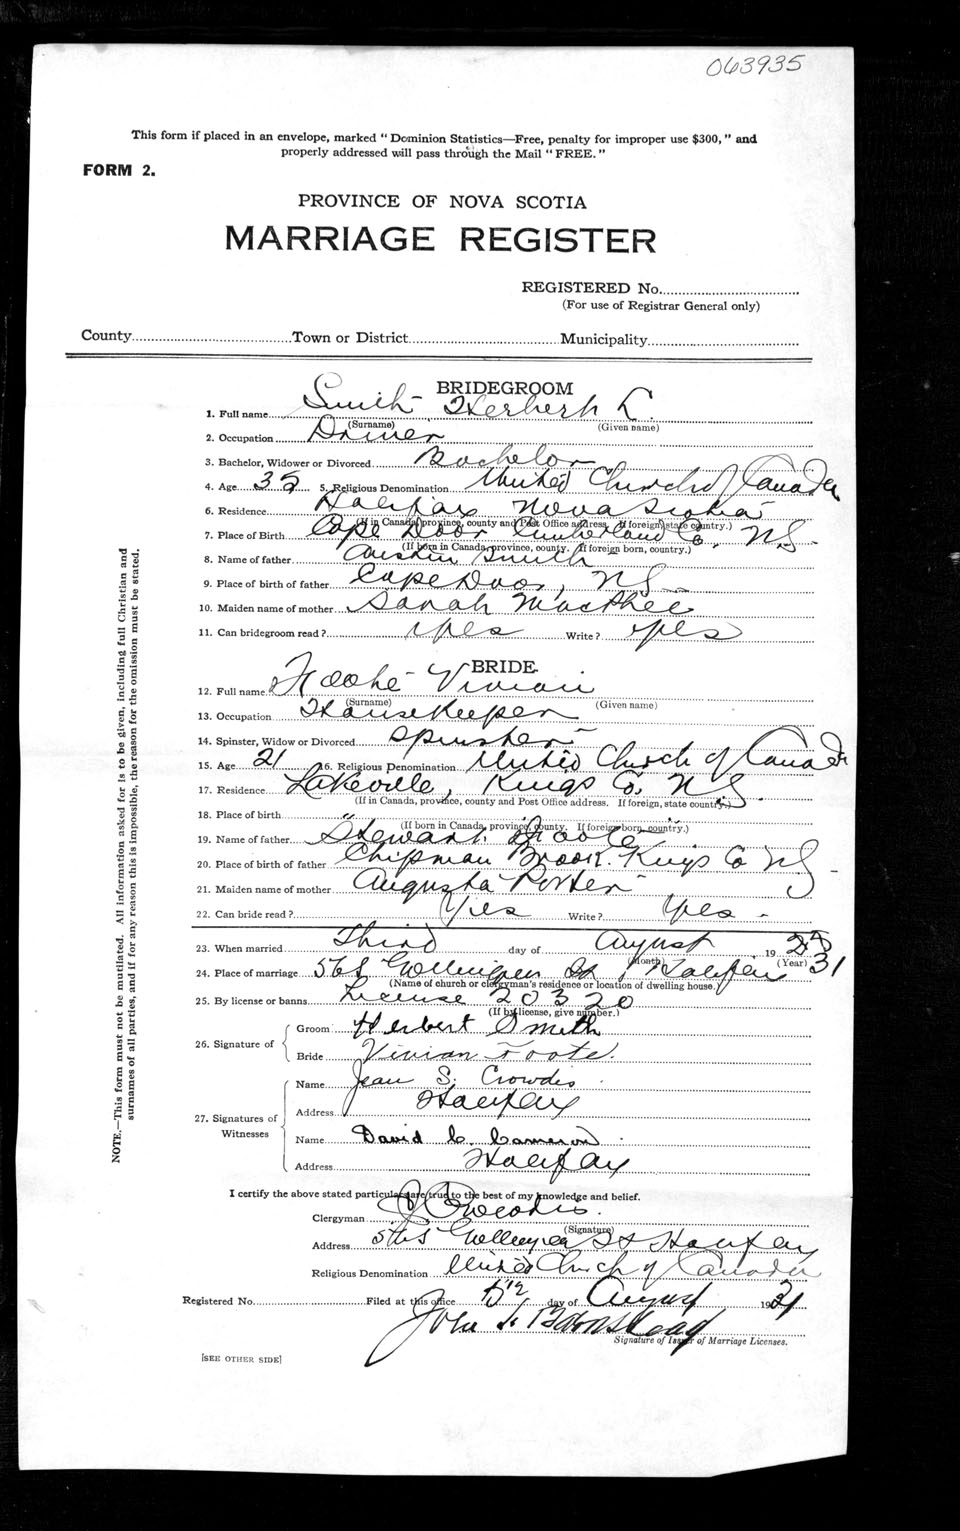 063935
This form if placed in an envelope, marked "Dominion Statistics—Free, penalty for improper use $300," and
properly addressed will pass through the Mail "FREE."
FORM 2.
PROVINCE OF NOVA SCOTIA
MARRIAGE REGISTER
REGISTERED No.
(For use of Registrar General only)
County Town or District Municipality
BRIDEGROOM
1. Full name Smith Herbert L.
(Surname) (Given name)
2. Occupation Driver
3. Bachelor, Widower or Divorced Bachelor
4. Age 35 5. Religious Denomination United Church of Canada
6. Residence Halifax Nova Scotia
(If in Canada, province, county and Post Office address. If foreign, state country.)
7. Place of Birth Cape Door Cumberland Co, NS.
(If born in Canada, province, county. If foreign born, country.)
8. Name of father Austin Smith
9. Place of birth of father Cape Door, NS.
10. Maiden name of mother Sarah MacPhee
11. Can bridegroom read? yes Write? yes
BRIDE
12. Full name Foote Vivian
(Surname) (Given name)
13. Occupation Housekeeper
14. Spinster, Widow or Divorced Spinster
15. Age 21 16. Religious Denomination United Church of Canada
17. Residence Lakeville, Kings Co. NS.
(If in Canada, province, county and Post Office address. If foreign, state country.)
18. Place of birth " "
(If born in Canada, province, county. If foreign born, country.)
19. Name of father Stewart Foote
20. Place of birth of father Chipman Brook. Kings Co NS
21. Maiden name of mother Augusta Porter
22. Can bride read? Yes Write? Yes
23. When married Third day of August 19 31
(Month) (Year)
24. Place of marriage St Halifax
(Name of church or clergyman's residence or location of dwelling house.)
25. By license or banns License 20320
(If by license, give number.)
26. Signature of Groom Herbert Smith
Bride Vivian Foote.
27. Signatures of Witnesses Name Jean S. Crowdis
Address Halifax
Name David C. Cameron
Address Halifax
I certify the above stated particulars are true to the best of my knowledge and belief.
Clergyman Crowdis.
(Signature)
Address St Halifax
Religious Denomination United Church of Canada
Registered No. Filed at this office day of August 1931
Signature of Issuer of Marriage Licenses.
[SEE OTHER SIDE]
NOTE.—This form must not be mutilated. All information asked for is to be given, including full Christian and
surnames of all parties, and if for any reason this is impossible, the reason for the omission must be stated.